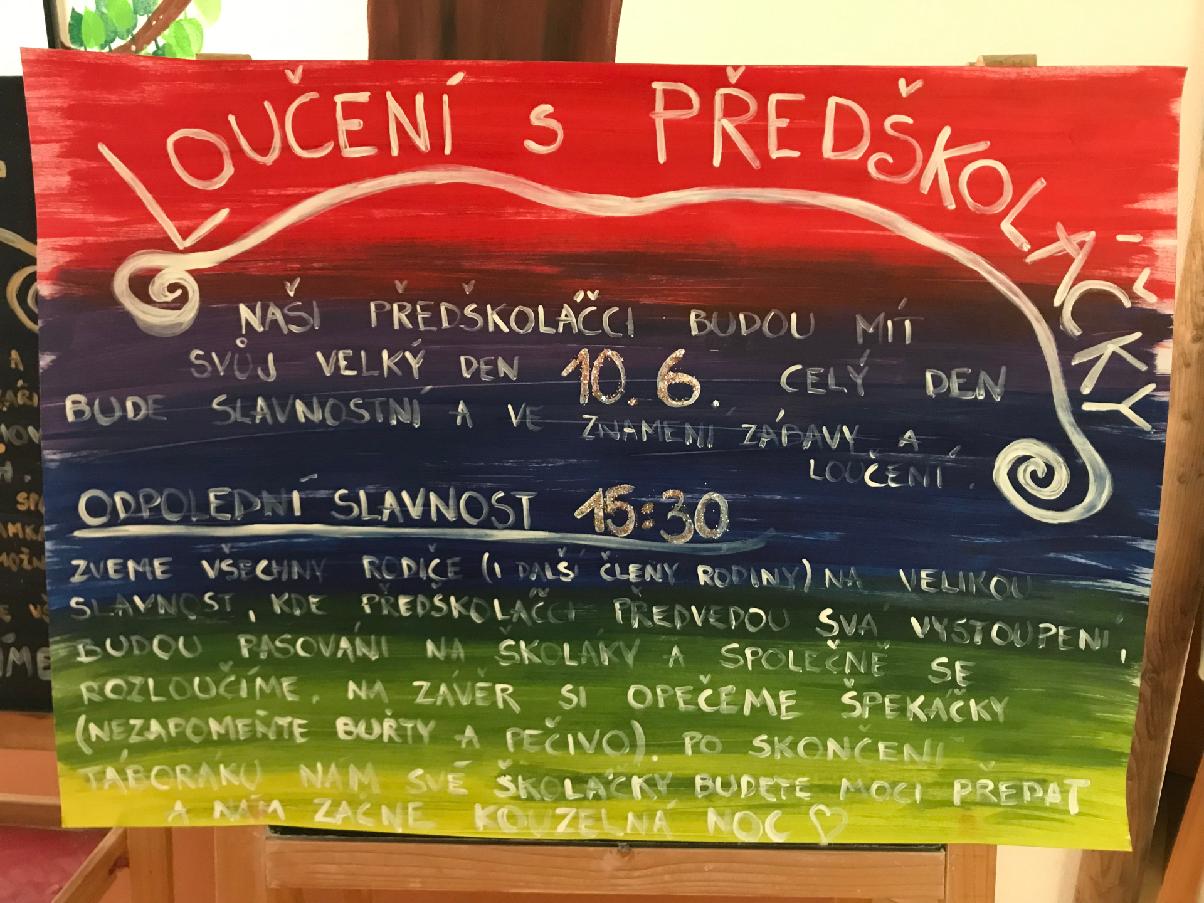 LOUČENÍ S PŘEDŠKOLÁČKY
NAŠI PŘEDŠKOLÁČCI BUDOU MÍT
SVŮJ VELKÝ DEN 10. 6. CELÝ DEN
BUDE SLAVNOSTNÍ A VE ZNAMENÍ ZÁBAVY A
LOUČENÍ.
ODPOLEDNÍ SLAVNOST 15:30
ZVEME VŠECHNY RODIČE (I DALŠÍ ČLENY RODINY) NA VELIKOU
SLAVNOST, KDE PŘEDŠKOLÁČCI PŘEDVEDOU SVÁ VYSTOUPENÍ,
BUDOU PASOVÁNI NA ŠKOLÁKY A SPOLEČNĚ SE
ROZLOUČÍME. NA ZÁVĚR SI OPEČEME ŠPEKÁČKY
(NEZAPOMEŇTE BUŘTY A PEČIVO). PO SKONČENÍ
TÁBORÁKU NÁM SVÉ ŠKOLÁČKY BUDETE MOCI PŘEDAT
A NÁM ZAČNE KOUZELNÁ NOC ♡